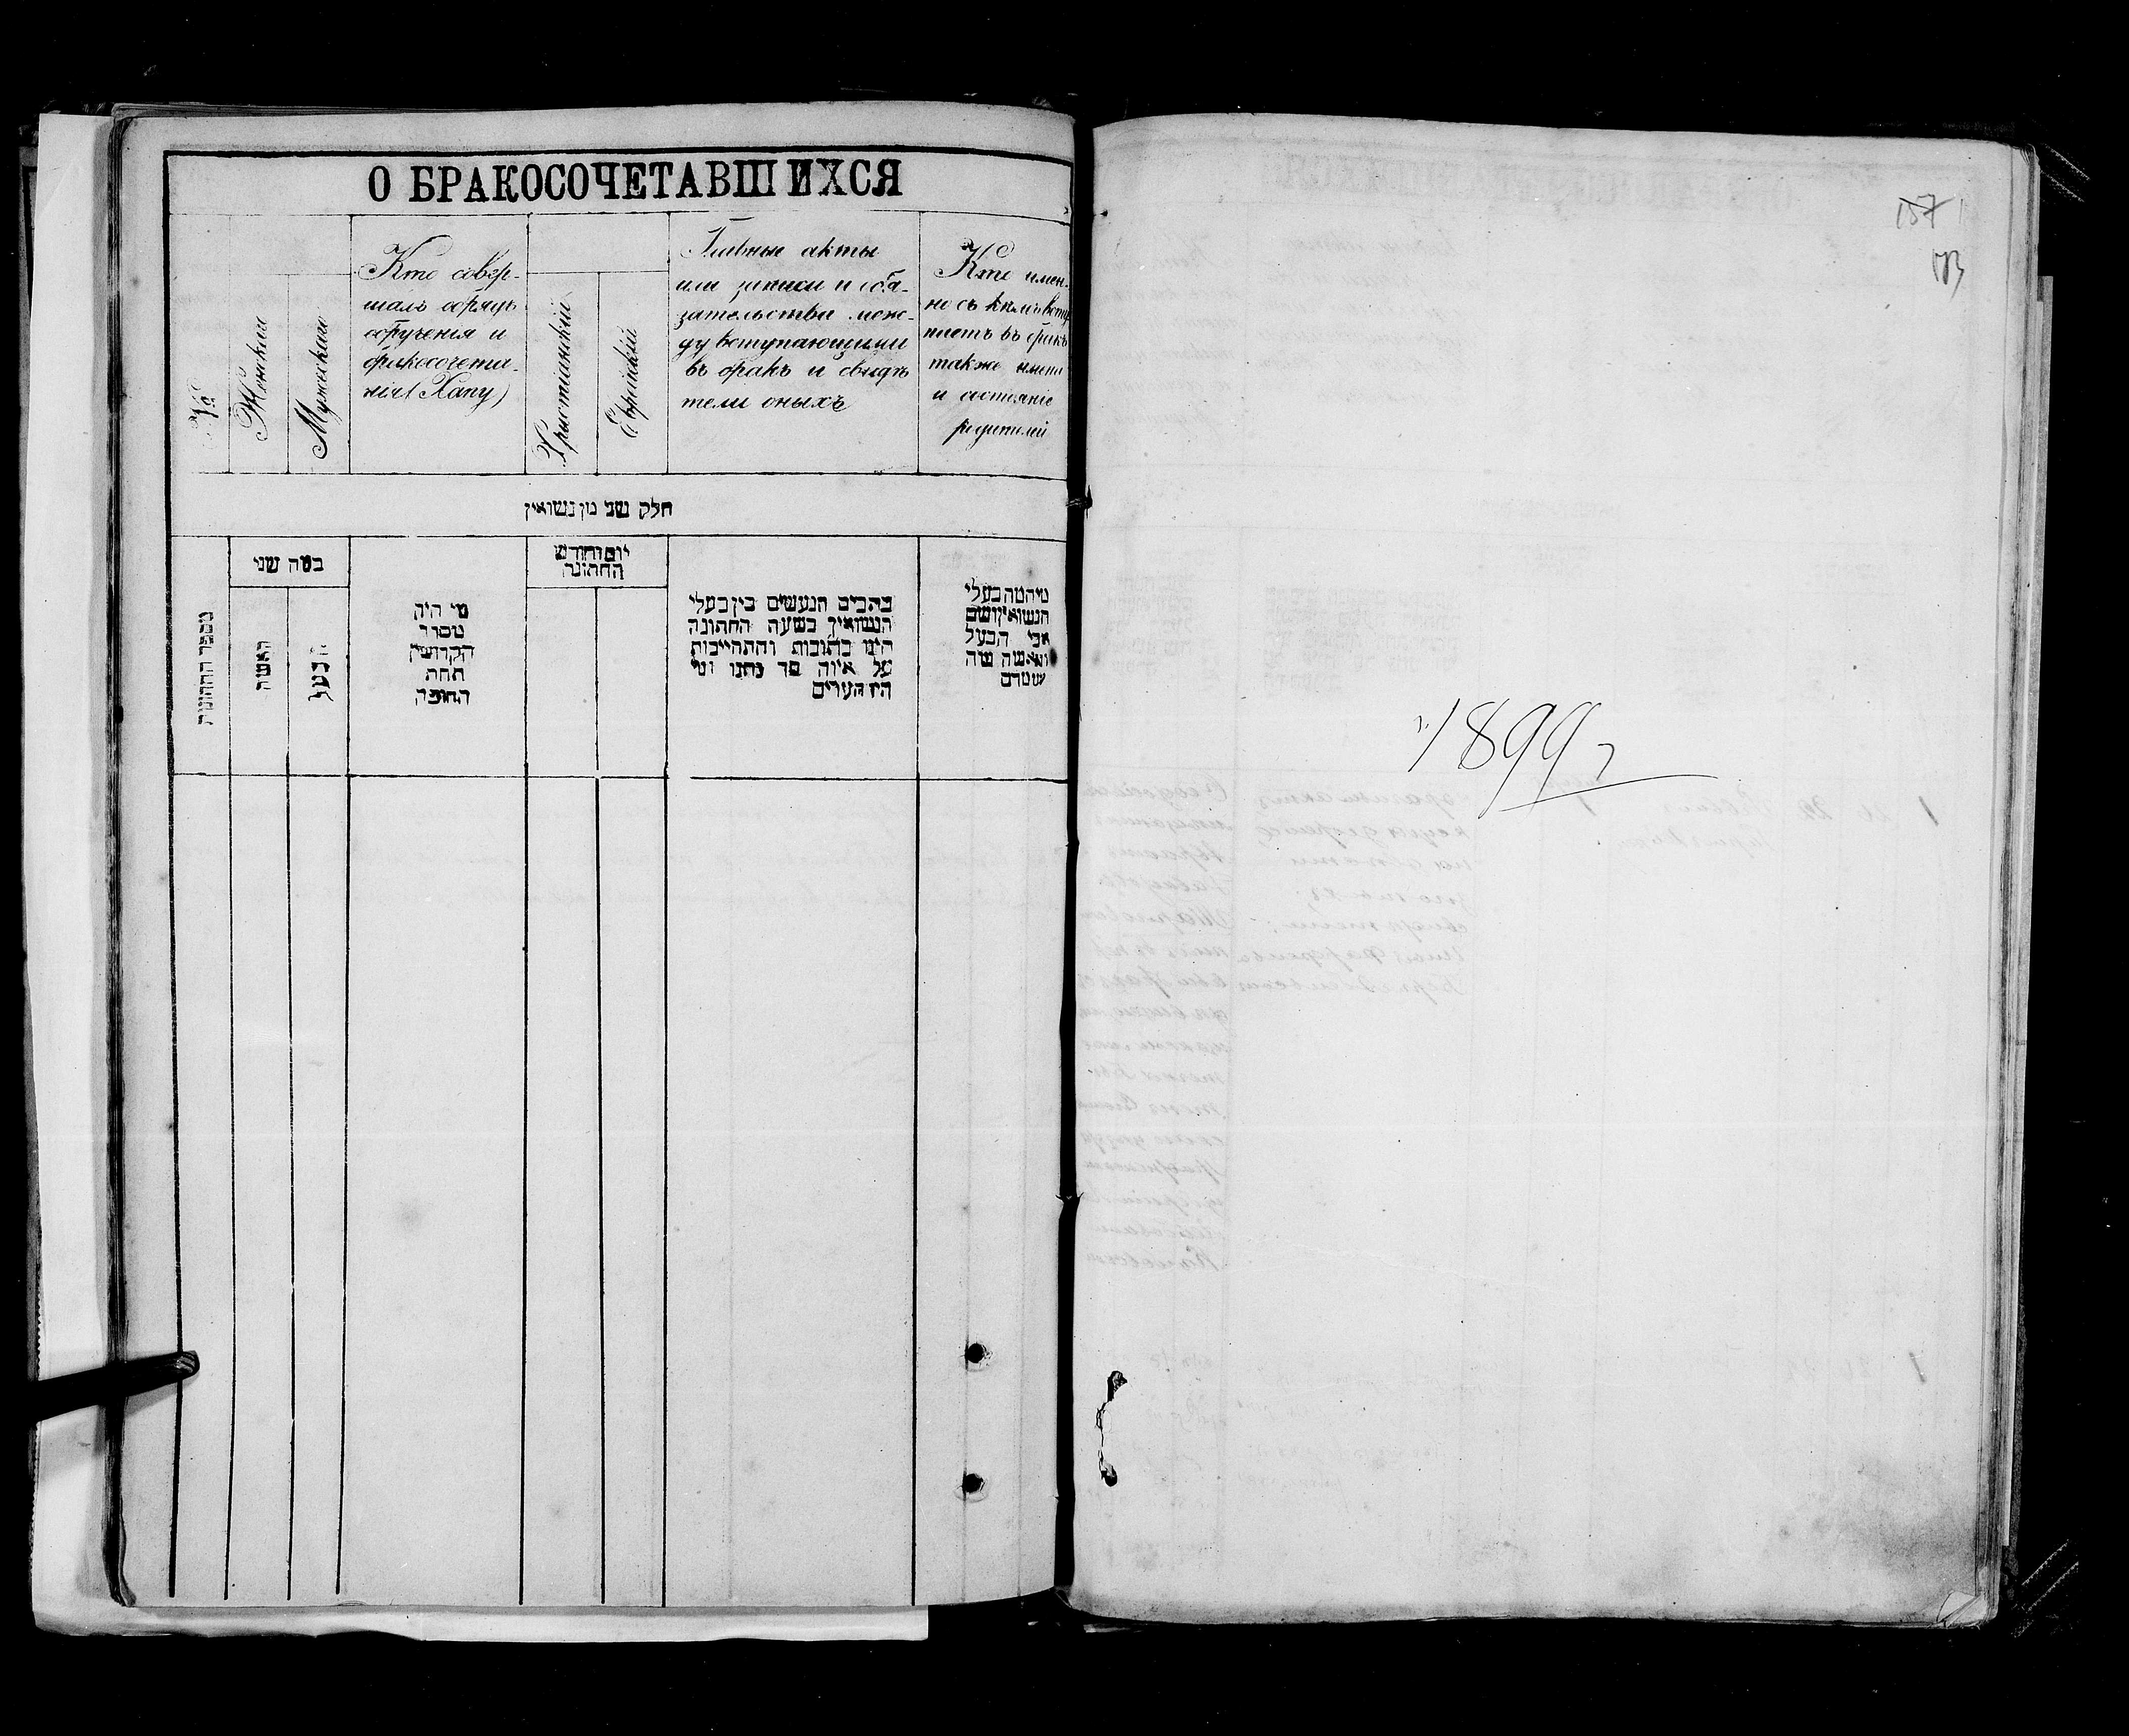 О БРАКОСОЧЕТАВШИХСЯ
№
Женскаго
Мужескаго
Кто совер-
шалъ обрядъ
обрученія и
бракосочета-
нія (Хапу)
Христіанскій
Еврейскій
Главные акты
или записи и обя-
зательства меж-
ду вступающими
въ бракъ и свидѣ
тели оныхъ
Кто имен-
но съ кѣмъ всту
паетъ въ бракъ
также имена
и состояніе
родителей
חלק שני מן נשואין
מספר החתונות
במה שני
האשה
הבעל
מי היה
מסדר
הקדושין
תחת
החופה
יום וחודש
החתונה
כתבים הנעשים בין בעלי
הנשואין בשעה החתונה
היינו כתובות והתחייבות
על איזה סך נתנו ומי
הם העדים
מיהמה בעלי
הנשואין ושם
אבי הבעל
והאשה מה
מעמדם
157
173
1899 г